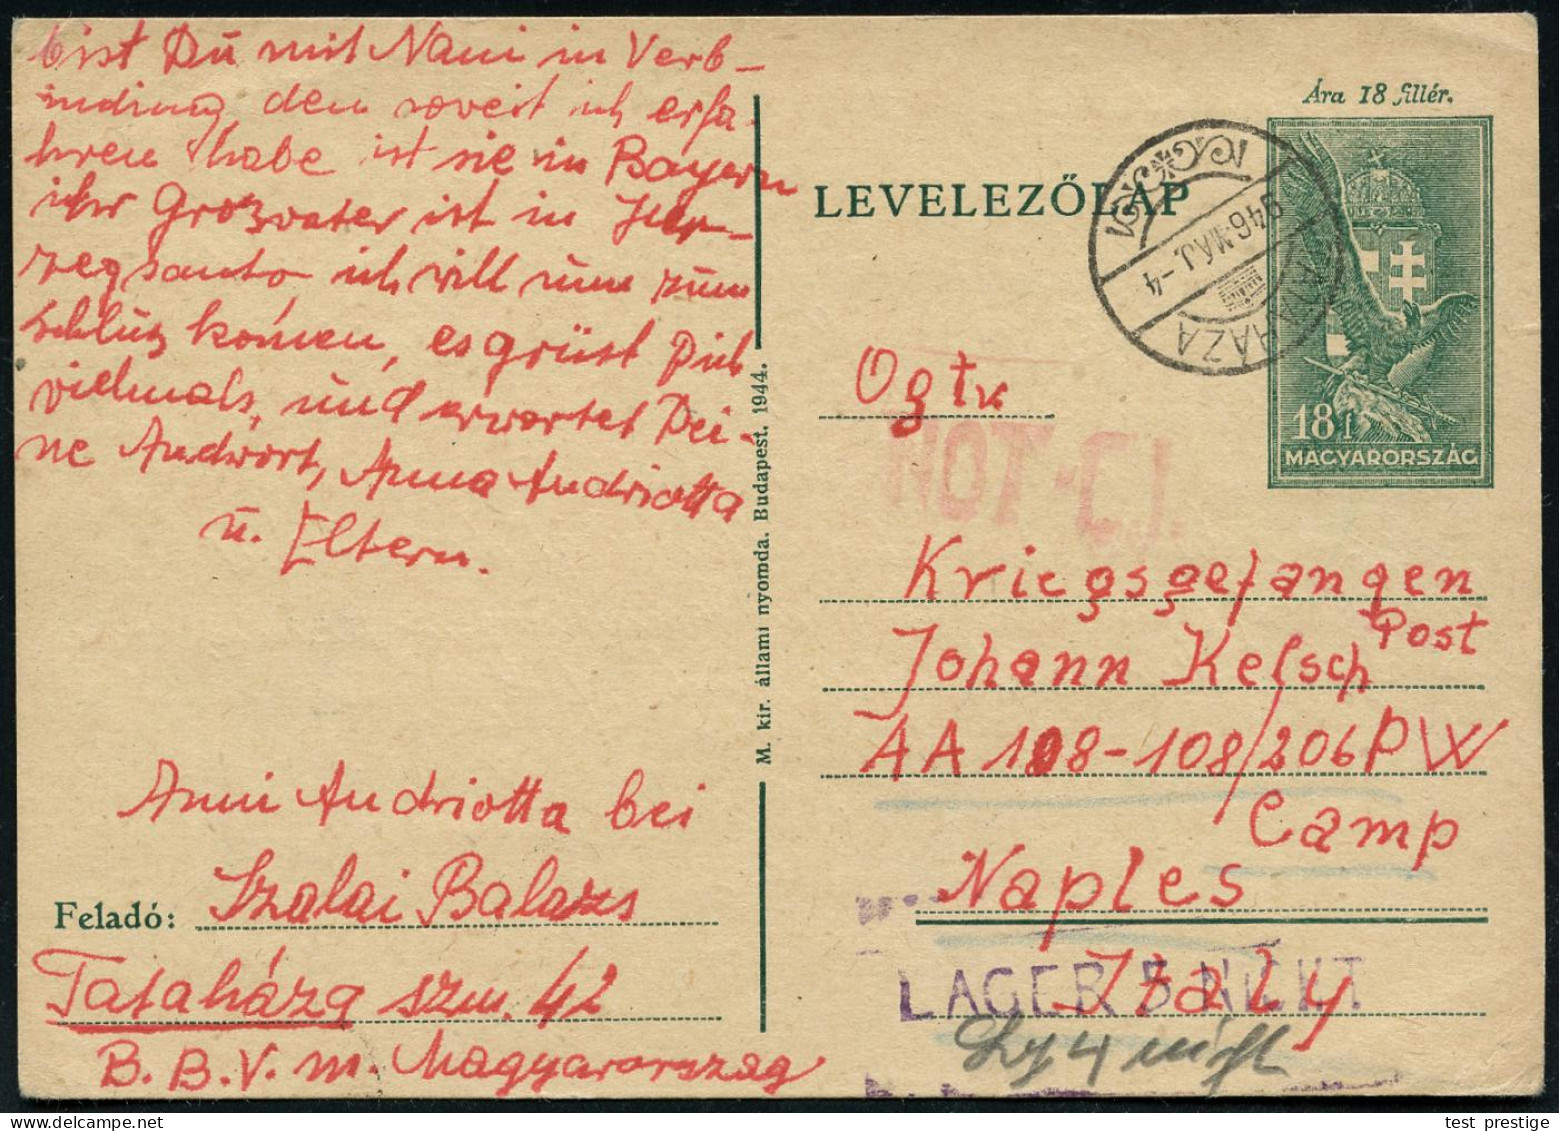 bist Du mit Nani in Verb-
indung, den soveit ich erfa-
hren habe ist sie in Bayern
ihr Großvater ist in Her-
zegsanto ich will nun zum
schluß komen, es grüst Dich
vielmals, und erwartet Dei-
ne Andwort, Anna Andriotta
u. Eltern.
Anni Andriotta bei
Feladó: Szalai Balazs
Tataháza szm. 42
B. B. V. m. Magyarország
M. kir. állami nyomda, Budapest. 1944.
Ára 18 fillér.
LEVELEZŐLAP
946·MÁJ.-4
TATAHÁZA
18 f
MAGYARORSZÁG
Ogtv
NOT-C.I.
Kriegsgefangen
Post
Johann Kelsch
AA 108-108/206 PW
Camp
Naples
Italy
LAGER 5 NICHT
Lg 4 nicht
test prestige